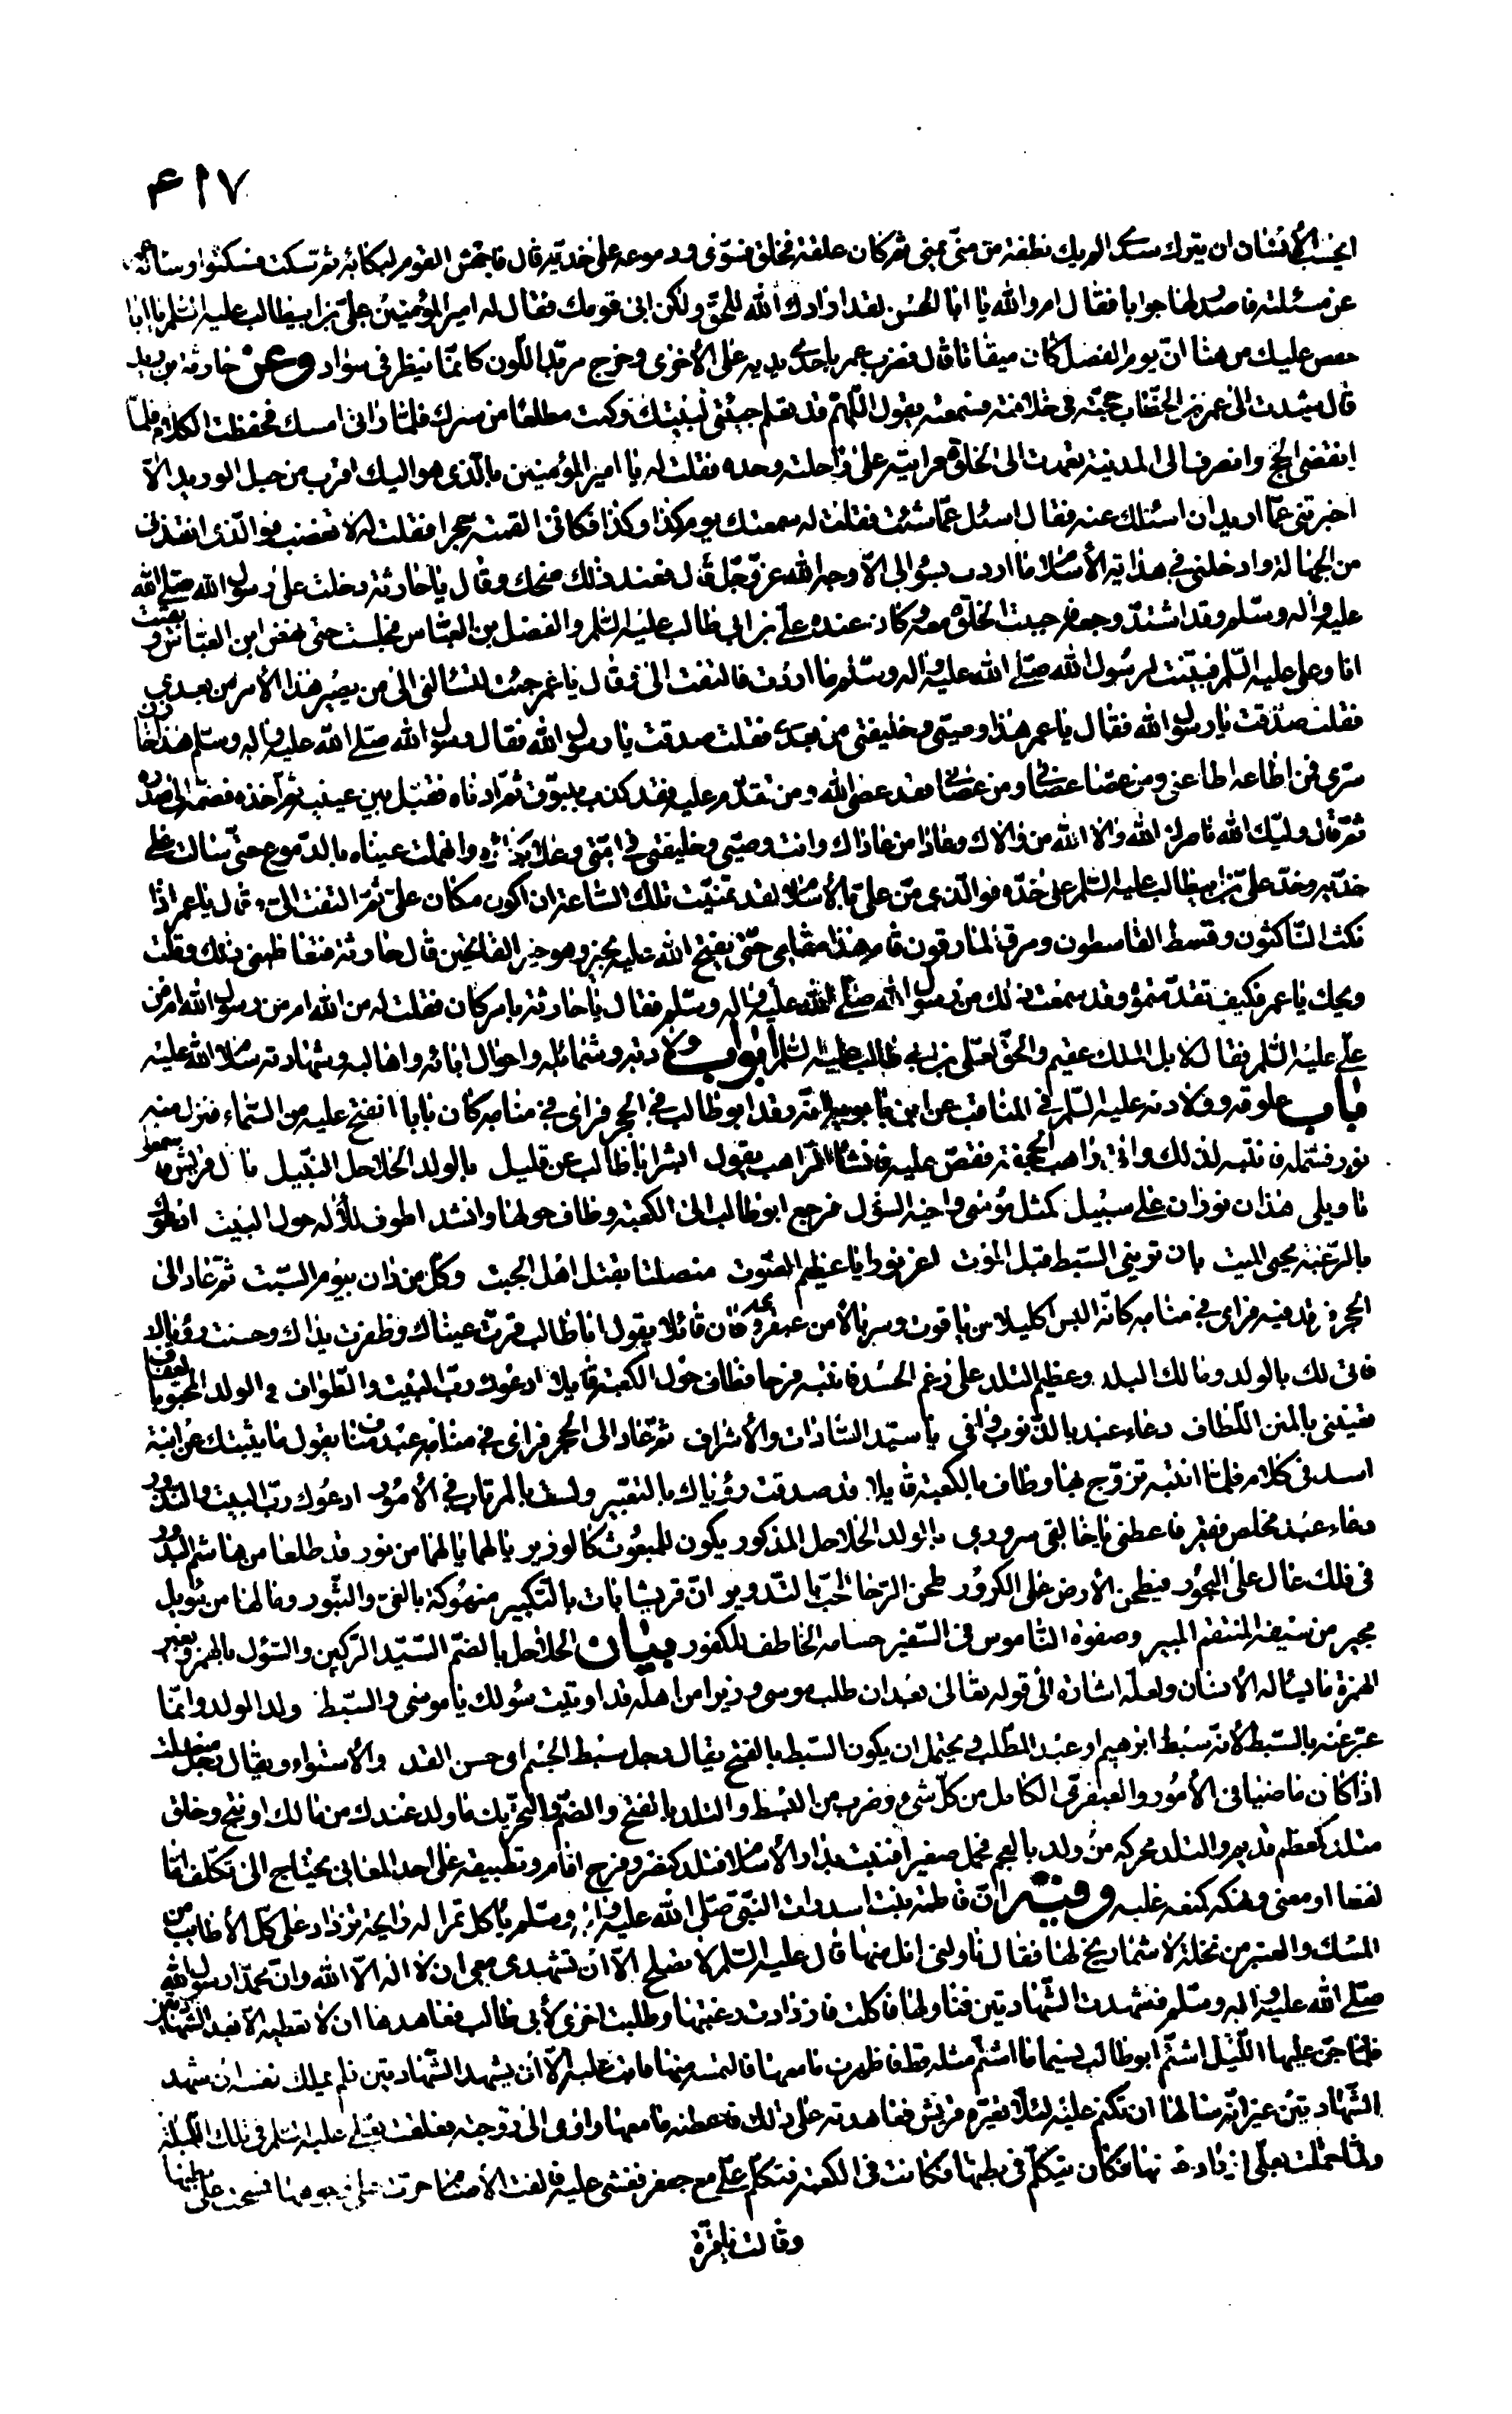 ٤١٧
ايحسب الأنسان ان يترك سدى الم يك نطفة من منىّ يمنى ثم كان علقة فخلق فسوّى ودموعه على خديه قال فاجهش القوم لبكائه ثم سكت فسكتوا وسأله
عن مسئلته فاصدر لها جوابا فقال ام والله يا ابا الحسن لقد ارادك الله للحق ولكن ابى قومك فقال له امير المؤمنين على بن ابيطالب عليه السلم يا ابا
حفص عليك من هنا انّ يوم الفصل كان ميقاتا قال فضرب عمر باحدى يديه على الأخرى وخرج مربد اللّون كانّما ينظر فى سواد وعن حارثة بن زيد
قال شهدت الى عمر بن الخطاب حجته فى خلافته فسمعته يقول اللّهم قد تعلم جيئتى لبيتك وكنت مطلعا من سترك فلمّا رانى امسك فحفظت الكلام فلمّا
انقضى الحج وانصرف الى المدينة تعمدت الى الخلوة فرايته على راحلته وحده فقلت له يا امير المؤمنين بالّذى هو اليك اقرب من حبل الوريد الاّ
اخبرتنى عمّا اريد ان اسئلك عنه فقال اسئل عمّا شئت فقلت له سمعتك يوم كذا وكذا فكانى القمته حجرا فقلت له لا تغضب فوالّذى انقذنى
من الجهالة وادخلنى فى هداية الأسلام ما اردت بسؤالى الاّ وجه الله عز وجّل قال فعند ذلك ضحك وقال يا حارثة دخلت على رسول الله صلى الله
عليه واله وسلم وقد اشتدّ وجعه فاحببت الخلوة معه وكان عنده علىّ بن ابى طالب عليه السلم والفضل بن العبّاس فجلست حتى نهض ابن العباس وبقيت
انا وعلى عليه السّلم فبيّنت لرسول الله صلّى الله عليه واله وسلم ما اردت فالتفت الىّ وقال يا عمر جئت لتسألنى الى من يصير هذا الأمر من بعدى
فقلت صدقت يا رسول الله فقال يا عمر هذا وصيّى وخليفتى من بعدى فقلت صدقت يا رسول الله فقال رسول الله صلّى الله عليه واله وسلم هذا خازن
سرّى فمن اطاعه اطاعنى ومن عصاه عصانى ومن عصانى فقد عصى الله ومن تقدّم عليه فقد كذب بنبوّتى ثمّ ادناه فقبّل بين عينيه ثم اخذه فضمه الى صدره
ثم قال وليّك الله ناصرك الله والا الله من والاك وعادا من عاداك وانت وصيّى وخليفتى فى امّتى وعلا بكاؤه وانهملت عيناه بالدموع حتّى سالت على
خدّيه وخدّ على بن ابيطالب عليه السّلم على خدّه فوالّذى منّ علىّ بالأسلام لقد تمنّيت تلك الساعة ان اكون مكان علىّ ثمّ التفت الىّ وقال يا عمر اذا
نكث النّاكثون وقسط القاسطون ومرق المارقون قام هذا مقامى حتّى يفتح الله عليه بخير وهو خير الفاتحين قال حارثة فتعاظمنى ذلك وقلت
ويحك يا عمر فكيف تقدّمتموه وقد سمعت ذلك من رسول الله صلى الله عليه واله وسلم فقال يا حارثة بامر كان فقلت له من الله ام من رسول الله ام من
علىّ عليه السّلم فقال لا بل الملك عقيم والحق لعلى بن ابى طالب عليه السّلم ابواب ولادته وشمائله واحوال ابائه واهاليه وشهادته سلام الله عليه
باب علوقه وولادته عليه السّلم فى المناقب عن ابن بابويه انّه رقد ابو طالب فى الحجر فراى فى منامه كان بابا انفتح عليه من السّماء فنزل منه
نور فشمله فانتبه لذلك واتى راهب الجحفة فقصّ عليه فانشأ الراهب يقول ابشر ابا طالب عن قليل بالولد الحلاحل النّبيل يا لقريش فاسمعوا
تاويلى هذان نوران على سبيل كمثل موسى واخيه السّؤل فرجع ابو طالب الى الكعبة وطاف حولها وانشد اطوف للأله حول البيت ادعوك
بالرّغبة محيى الميت بان ترينى السّبط قبل الموت اغر نورا يا عظيم الصّوت منصلتا بقتل اهل الجبت وكلّ من دان بيوم السّبت ثمّ عاد الى
الحجر فرقد فيه فراى فى منامه كانّه البس اكليلا من ياقوت وسربالا من عبقرى وكان قائلا يقول ابا طالب قرت عيناك وظفرت يداك وحسنت رؤياك
فاتى لك بالولد ومالك البلد وعظيم التلد على رغم الحسد فانتبه فرحا فطاف حول الكعبة قايلا ادعوك ربّ البيت والطواف والولد المحبو بالعفاف
تعيننى بالمنن اللّطاف دعاء عبد بالذّنوب وافى يا سيّد السّادات والأشراف ثمّ عاد الى الحجر فراى فى منامه عبد مناف يقول ما يثبّتك عن ابنة
اسد فى كلام فلمّا انتبه تزوّج بها وطاف بالكعبة قايلا قد صدقت رؤياك بالتعبير ولست بالمرتاب فى الأمور ادعوك ربّ البيت والنذور
دعاء عبد مخلص فقير فاعطنى يا خالقى سرورى بالولد الحلاحل المذكور يكون للمبعوث كالوزير يا لهما يا لهما من نور قد طلعا من هاشم البدور
فى فلك عال على البحور فيطحن الأرض على الكرور طحن الرّحا للحبّ بالتّدوير انّ قريشا بات بالتّكبير منهوكة بالغىّ والثّبور وما لها من موئل
مجير من سيفه المنتقم المبير وصفوة النّاموس فى السّفير حسامه الخاطف للكفور بيان الحلاحل بالضّم السّيّد الرّكين والسّؤل بالهمز وبغير
الهمزة ما يساله الأنسان ولعلّه اشارة الى قوله تعالى بعد ان طلب موسى وزيرا من اهله قد اوتيت سؤلك يا موسى والسّبط ولد الولد وانّما
عبّر عنه بالسّبط لأنّه سبط ابرهيم او عبد المطّلب ويحتمل ان يكون السّبط بالفتح يقال رجل سبط الجسم اى حسن القد والأستواء ويقال رجل منصلت
اذا كان ماضيا فى الأمور والعبقرىّ الكامل من كلّ شىء وضرب من البسط والتلد بالفتح والضّم والتحريك ما ولد عندك من مالك او نتج وخلق
متلد كمعظم قديم والتلد محركه من ولد بالعجم فحمل صغيرا فنبت بدار الأسلام وتلد كنصر وفرح اقام وتطبيقه على احد المعانى يحتاج الى تكلّف امّا
لفظا او معنى ونهكه كمنعه غلبه وفيه انّ فاطمة بنت اسد رات النّبى صلى الله عليه واله وسلم ياكل تمرا له رايحة تزداد على كلّ الأطايب من
المسك والعنبر من نخلة لا شماريخ لها فقال ناولنى انل منها قال عليه السّلم لا تصلح الاّ ان تشهدى معى ان لا اله الاّ الله وانّ محمّدا رسول الله
صلى الله عليه واله وسلم فشهدت الشّهادتين فناولها فاكلت فازدادت رغبتها وطلبت اخرى لأبى طالب فعاهدها ان لا تعطيه الاّ بعد الشهادتين
فلمّا جنّ عليها اللّيل اشتمّ ابو طالب نسيما ما اشتمّ مثله قط فاظهرت ما معها فالتمسه منها فابت عليه الاّ ان يشهد الشّهادتين فلم يملك نفسه ان شهد
الشّهادتين غير انّه سالها ان تكتم عليه لئلا تعيّره قريش فعاهدته على ذلك فاعطته ما معها واوى الى زوجته فعلقت بعلى عليه السّلم فى تلك اللّيلة
ولمّا حملت بعلى ازداد حسنها فكان يتكلّم فى بطنها فكانت فى الكعبة فتكلّم علىّ مع جعفر فغشى عليه فالقت الأصنام خرّت على وجوهها فمسحت على بطنها
وقالت يا قرة